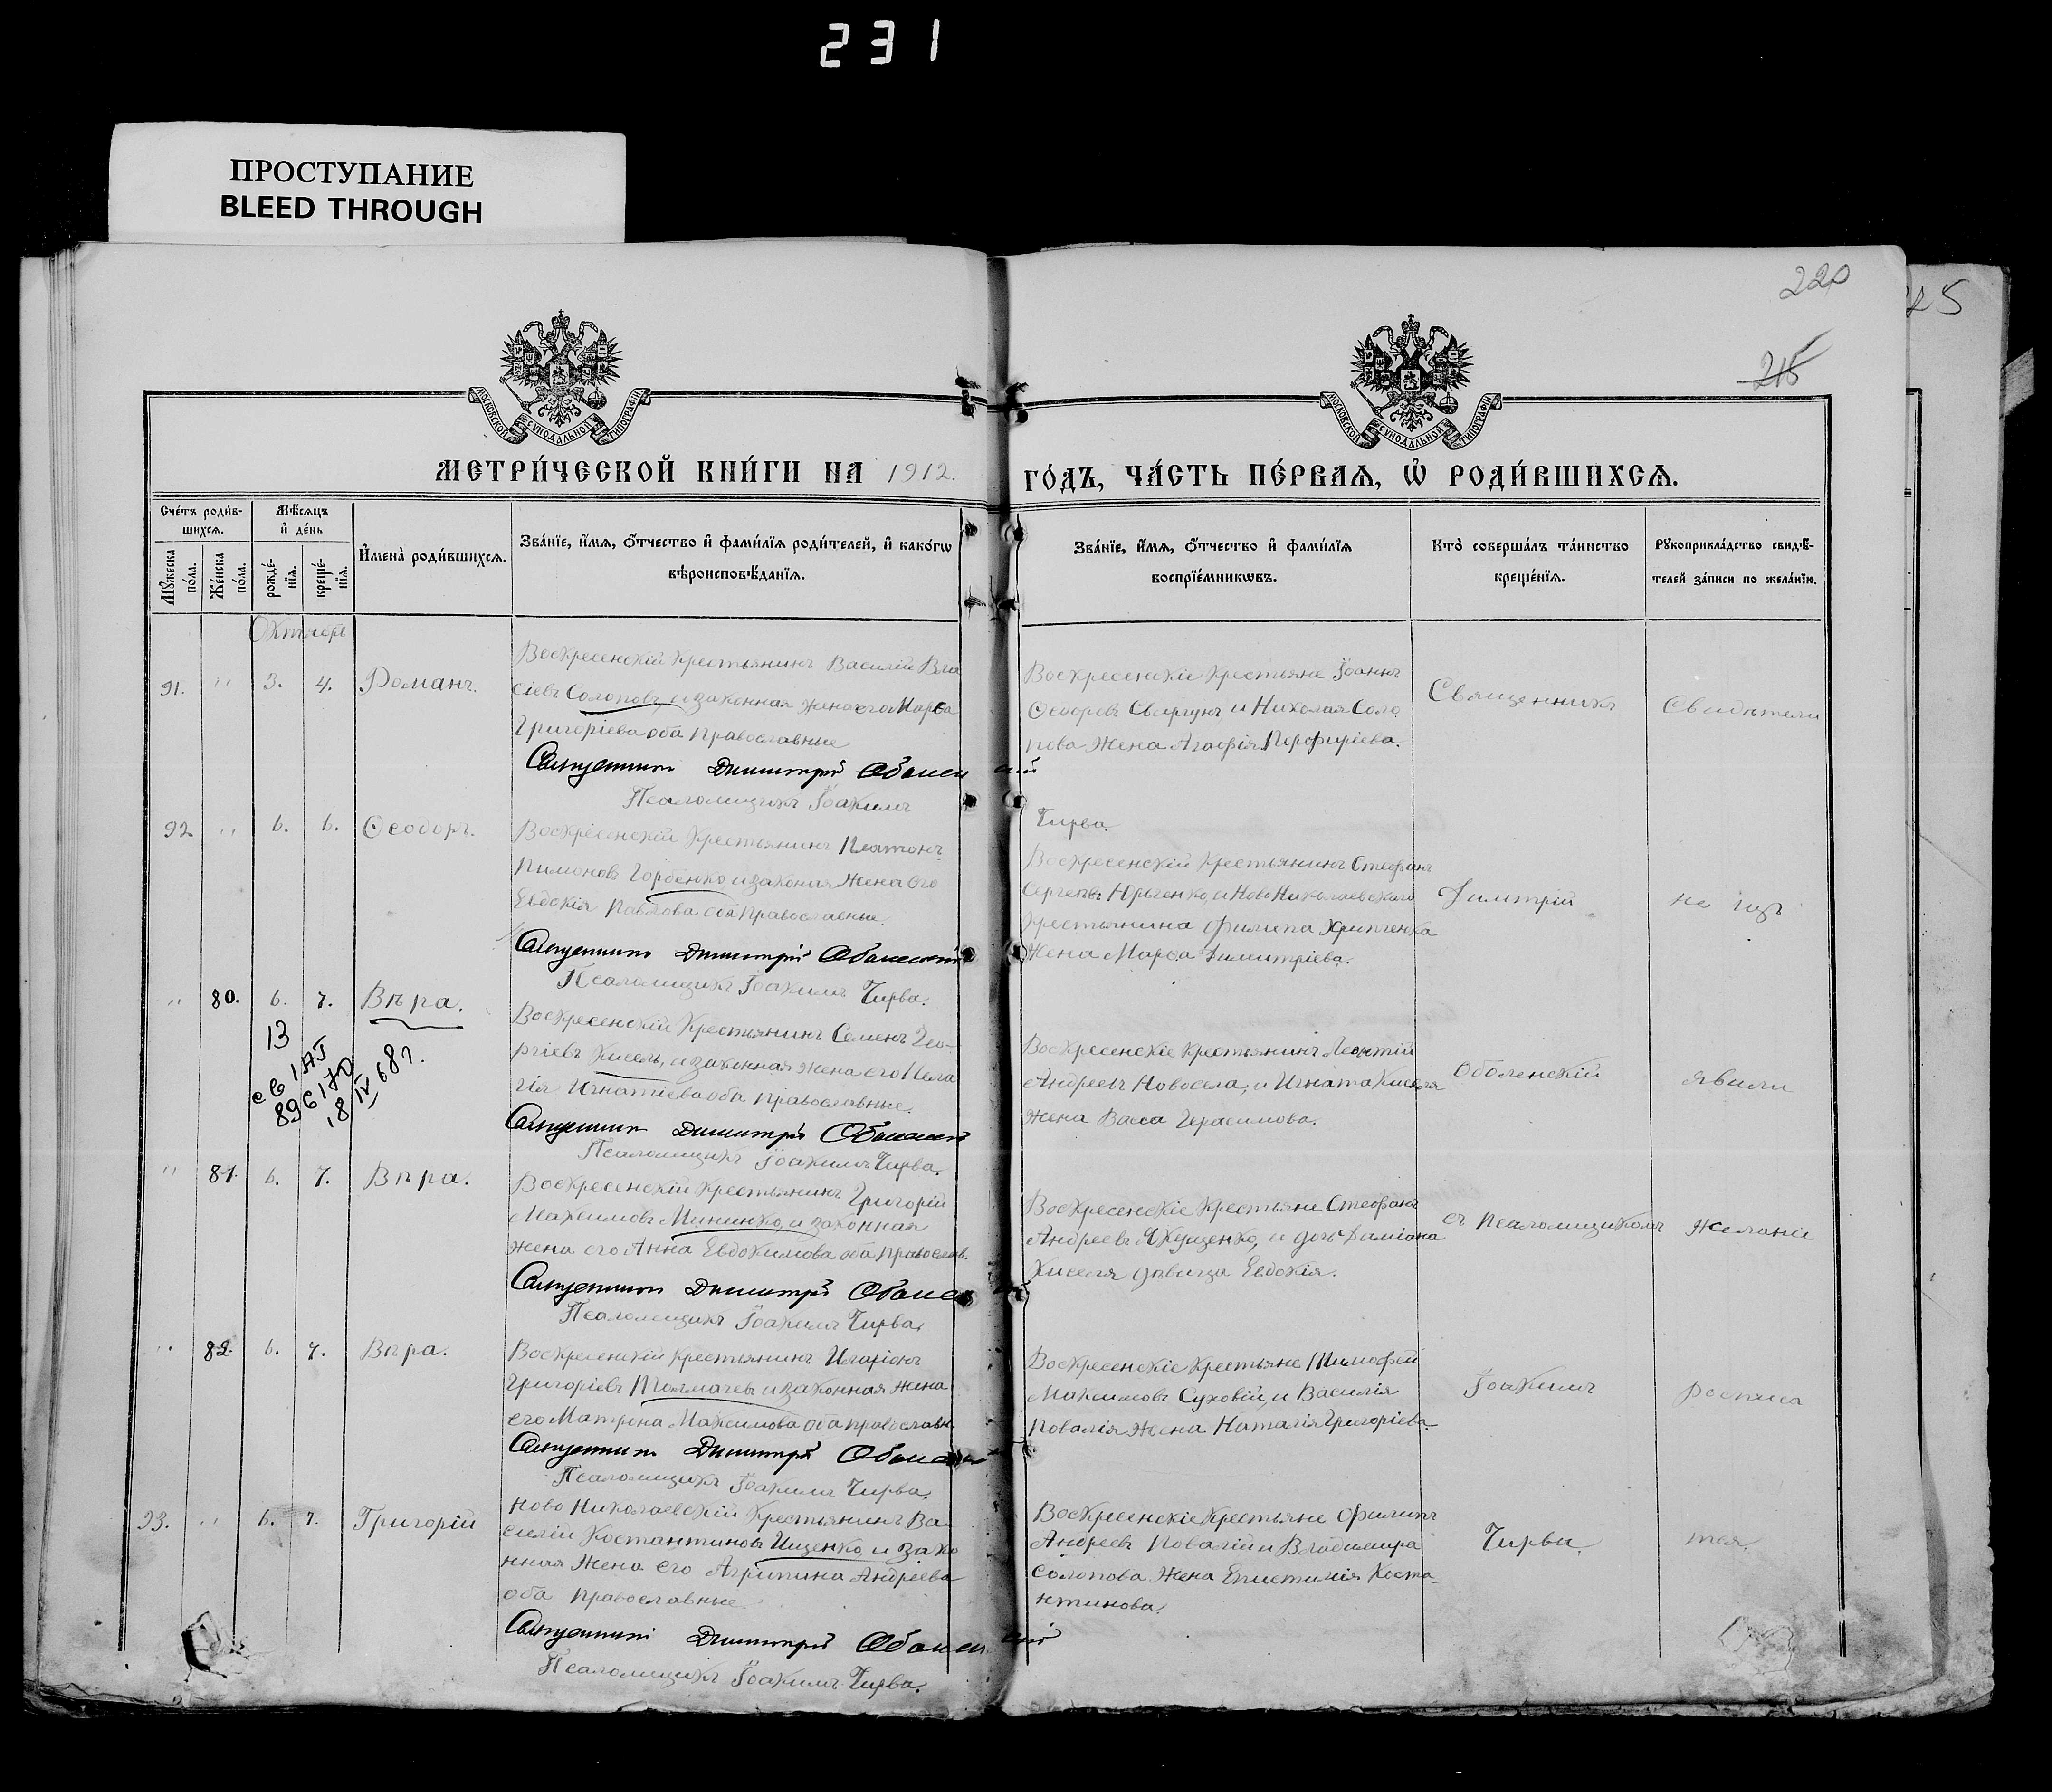 231
ПРОСТУПАНИЕ
BLEED THROUGH
220
225
215
МОСКОВСКОЙ СѴНОДАЛЬНОЙ ТИПОГРАФІИ
МОСКОВСКОЙ СѴНОДАЛЬНОЙ ТИПОГРАФІИ
МЕТРИ́ЧЕСКОЙ КНИ́ГИ НА 1912.
ГО́ДЪ, ЧА́СТЬ ПЕ́РВАѦ, Ѡ҆ РОДИ́ВШИХСѦ.
Сче́тъ роди́в-
шихсѧ.
Мꙋ́жеска
по́ла.
Же́нска
по́ла.
Мѣ́сѧцъ
и҆ де́нь
рожде́-
нїѧ.
креще́-
нїѧ.
И҆мена̀ роди́вшихсѧ.
Зва́нїе, и҆́мѧ, ѻ҆́тчество и҆ фами́лїѧ роди́телей, и҆ како́гѡ
вѣроисповѣ́данїѧ.
Зва́нїе, и҆́мѧ, ѻ҆́тчество и҆ фами́лїѧ
воспрїе́мникѡвъ.
Кто̀ соверша́лъ та́инство
креще́нїѧ.
Рꙋкоприкла́дство свидѣ́-
телей за́писи по жела́нїю.
Октябрь
91. " 3. 4. Романъ.
Воскресенскій крестьянинъ Василій Вла
сіевъ Солоповъ, и законная жена его Марѳа
Григоріева оба православные
Священникъ Димитрій Оболенскій
Псаломщикъ Іоакимъ
Чирва.
Воскресенскіе крестьяне Іоаннъ
Ѳеодоровъ Свиргунъ и Николая Соло
пова жена Агафія Перфиріева.
92 " 6. 6. Ѳеодоръ.
Воскресенскій крестьянинъ Платонъ
Пимоновъ Горбенко, и законая жена его
Евдокія Павлова оба православные.
Священникъ Димитрій Оболенскій
Псаломщикъ Іоакимъ Чирва.
Воскресенскій крестьянинъ Стефанъ
Сергеевъ Юрченко, и Ново Николаевскаго
крестьянина Филипа Хрипченка
жена Марѳа Димитріева.
" 80. 6. 7. Вѣра.
13
св I АЯ
896170
18 IV 68 г.
Воскресенскій крестьянинъ Семенъ Гео-
ргіевъ Кисель, и законная жена его Пела
гія Игнатіева оба православные.
Священникъ Димитрій Оболенскій
Псаломщикъ Іоакимъ Чирва.
Воскресенскіе крестьянинъ Леонтій
Андреевъ Новосела, и Игната Киселя
жена Васса Герасимова.
" 81. 6. 7. Вѣра.
Воскресенскій крестьянинъ Григорій
Максимовъ Мининко, и законная
жена его Анна Евдокимова оба православ.
Священникъ Димитрій Оболенскій
Псаломщикъ Іоакимъ Чирва.
Воскресенскіе крестьяне Стефанъ
Андреевъ Якущенко, и дочь Даміана
Киселя дѣвица Евдокія.
" 82. 6. 7. Вѣра.
Воскресенскій крестьянинъ Иларіонъ
Григоріевъ Толмачевъ и законная жена
его Матрона Максимова оба православн.
Священникъ Димитрій Оболенскій
Псаломщикъ Іоакимъ Чирва.
Воскресенскіе крестьяне Тимофей
Максимовъ Суховій, и Василія
Повалія жена Наталія Григоріева.
93. " 6. 7. Григорій
Ново Николаевскій крестьянинъ Ва-
силій Костантиновъ Ищенко, и зако
нная жена его Агрипина Андреева
оба православные
Священникъ Димитрій Оболенскій
Псаломщикъ Іоакимъ Чирва.
Воскресенскіе крестьяне Филипъ
Андреевъ Повалій и Владимира
Солопова жена Епистимія Коста-
нтинова.
Священникъ
Димитрій
Оболенскій
съ псаломщикомъ
Іоакимъ
Чирва.
Свидѣтели
не изъ
явили
желаніе
росписа
тся.